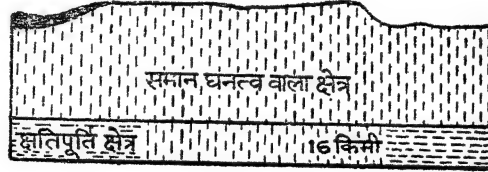 समान घनत्व वाला क्षेत्र
क्षतिपूर्ति क्षेत्र 16 किमी